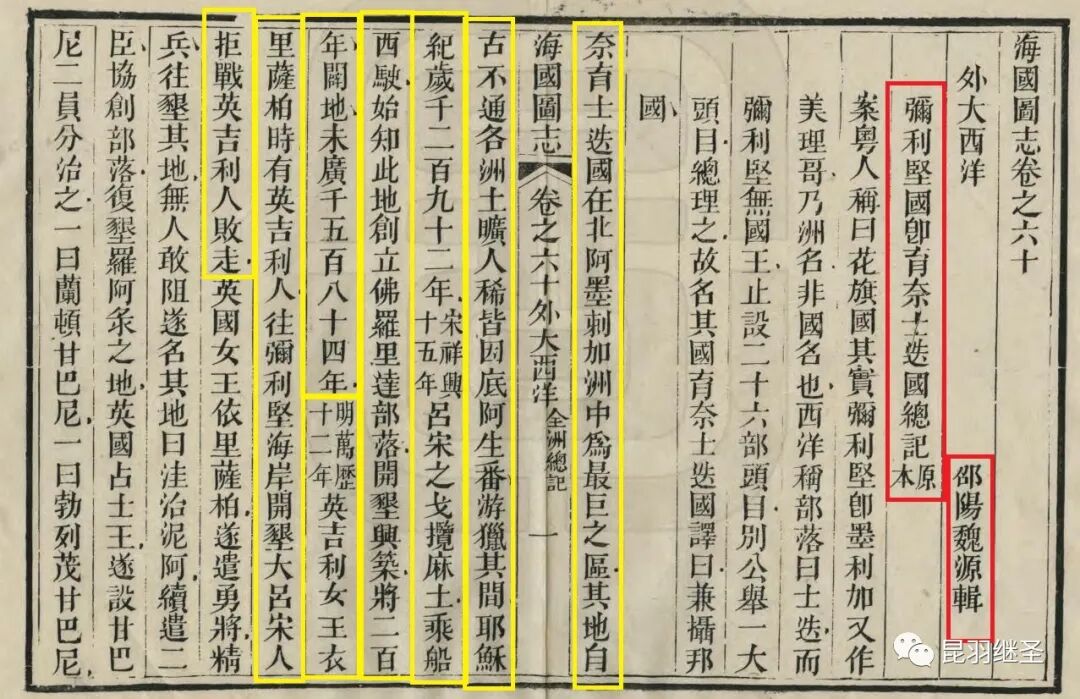 海國圖志卷之六十
外大西洋 邵陽魏源輯
彌利堅國卽育奈士迭國總記原本
案粵人稱曰花旗國其實彌利堅卽墨利加又作
美理哥乃洲名非國名也西洋稱部落曰士迭而
彌利堅無國王止設二十六部頭目別公舉一大
頭目總理之故名其國育奈士迭國譯曰兼攝邦
國
奈育士迭國在北阿墨刺加洲中爲最巨之區其地自
海國圖志 卷之六十外大西洋 全洲總記 一
古不通各洲土曠人稀皆因底阿生番游獵其間耶穌
紀歲千二百九十二年宋祥興十五年呂宋之戈攬麻士乘船
西駛始知此地創立佛羅里達部落開墾興築將二百
年闢地未廣千五百八十四年明萬歷十二年英吉利女王衣
里薩柏時有英吉利人往彌利堅海岸開墾大呂宋人
拒戰英吉利人敗走英國女王依里薩柏遂遣勇將精
兵往墾其地無人敢阻遂名其地曰洼治泥阿續遣二
臣協創部落復墾羅阿氽之地英國占士王遂設甘巴
尼二員分治之一曰蘭頓甘巴尼一曰勃列茂甘巴尼
昆羽继圣